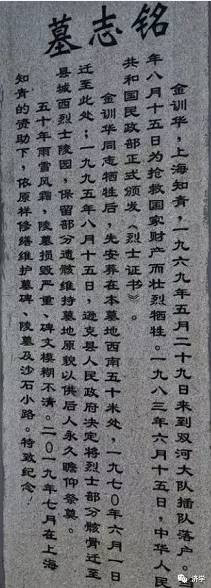 墓志铭
金训华，上海知青，一九六九年五月二十九日来到双河大队插队落户。一九六九
年八月十五日为抢救国家财产而壮烈牺牲。一九八三年六月十五日，中华人民
共和国民政部正式颁发《烈士证书》。
金训华同志牺牲后，先安葬在本墓地西南五十米处，一九七〇年六月一日
迁至此处；一九九五年八月十五日，逊克县人民政府决定将烈士部分骸骨迁至
县城西烈士陵园，保留部分遗骸维持墓地原貌以供后人永久瞻仰祭奠。
五十年雨雪风霜，陵墓损毁严重、碑文模糊不清。二〇一九年七月在上海
知青的资助下，依原样修缮维护墓碑、陵墓及沙石小路。特致纪念！
济学